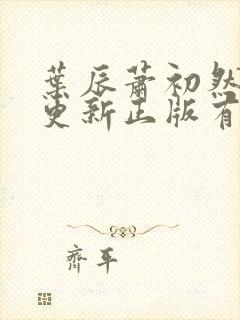 葉辰蕭初然
更新正版有
齊平